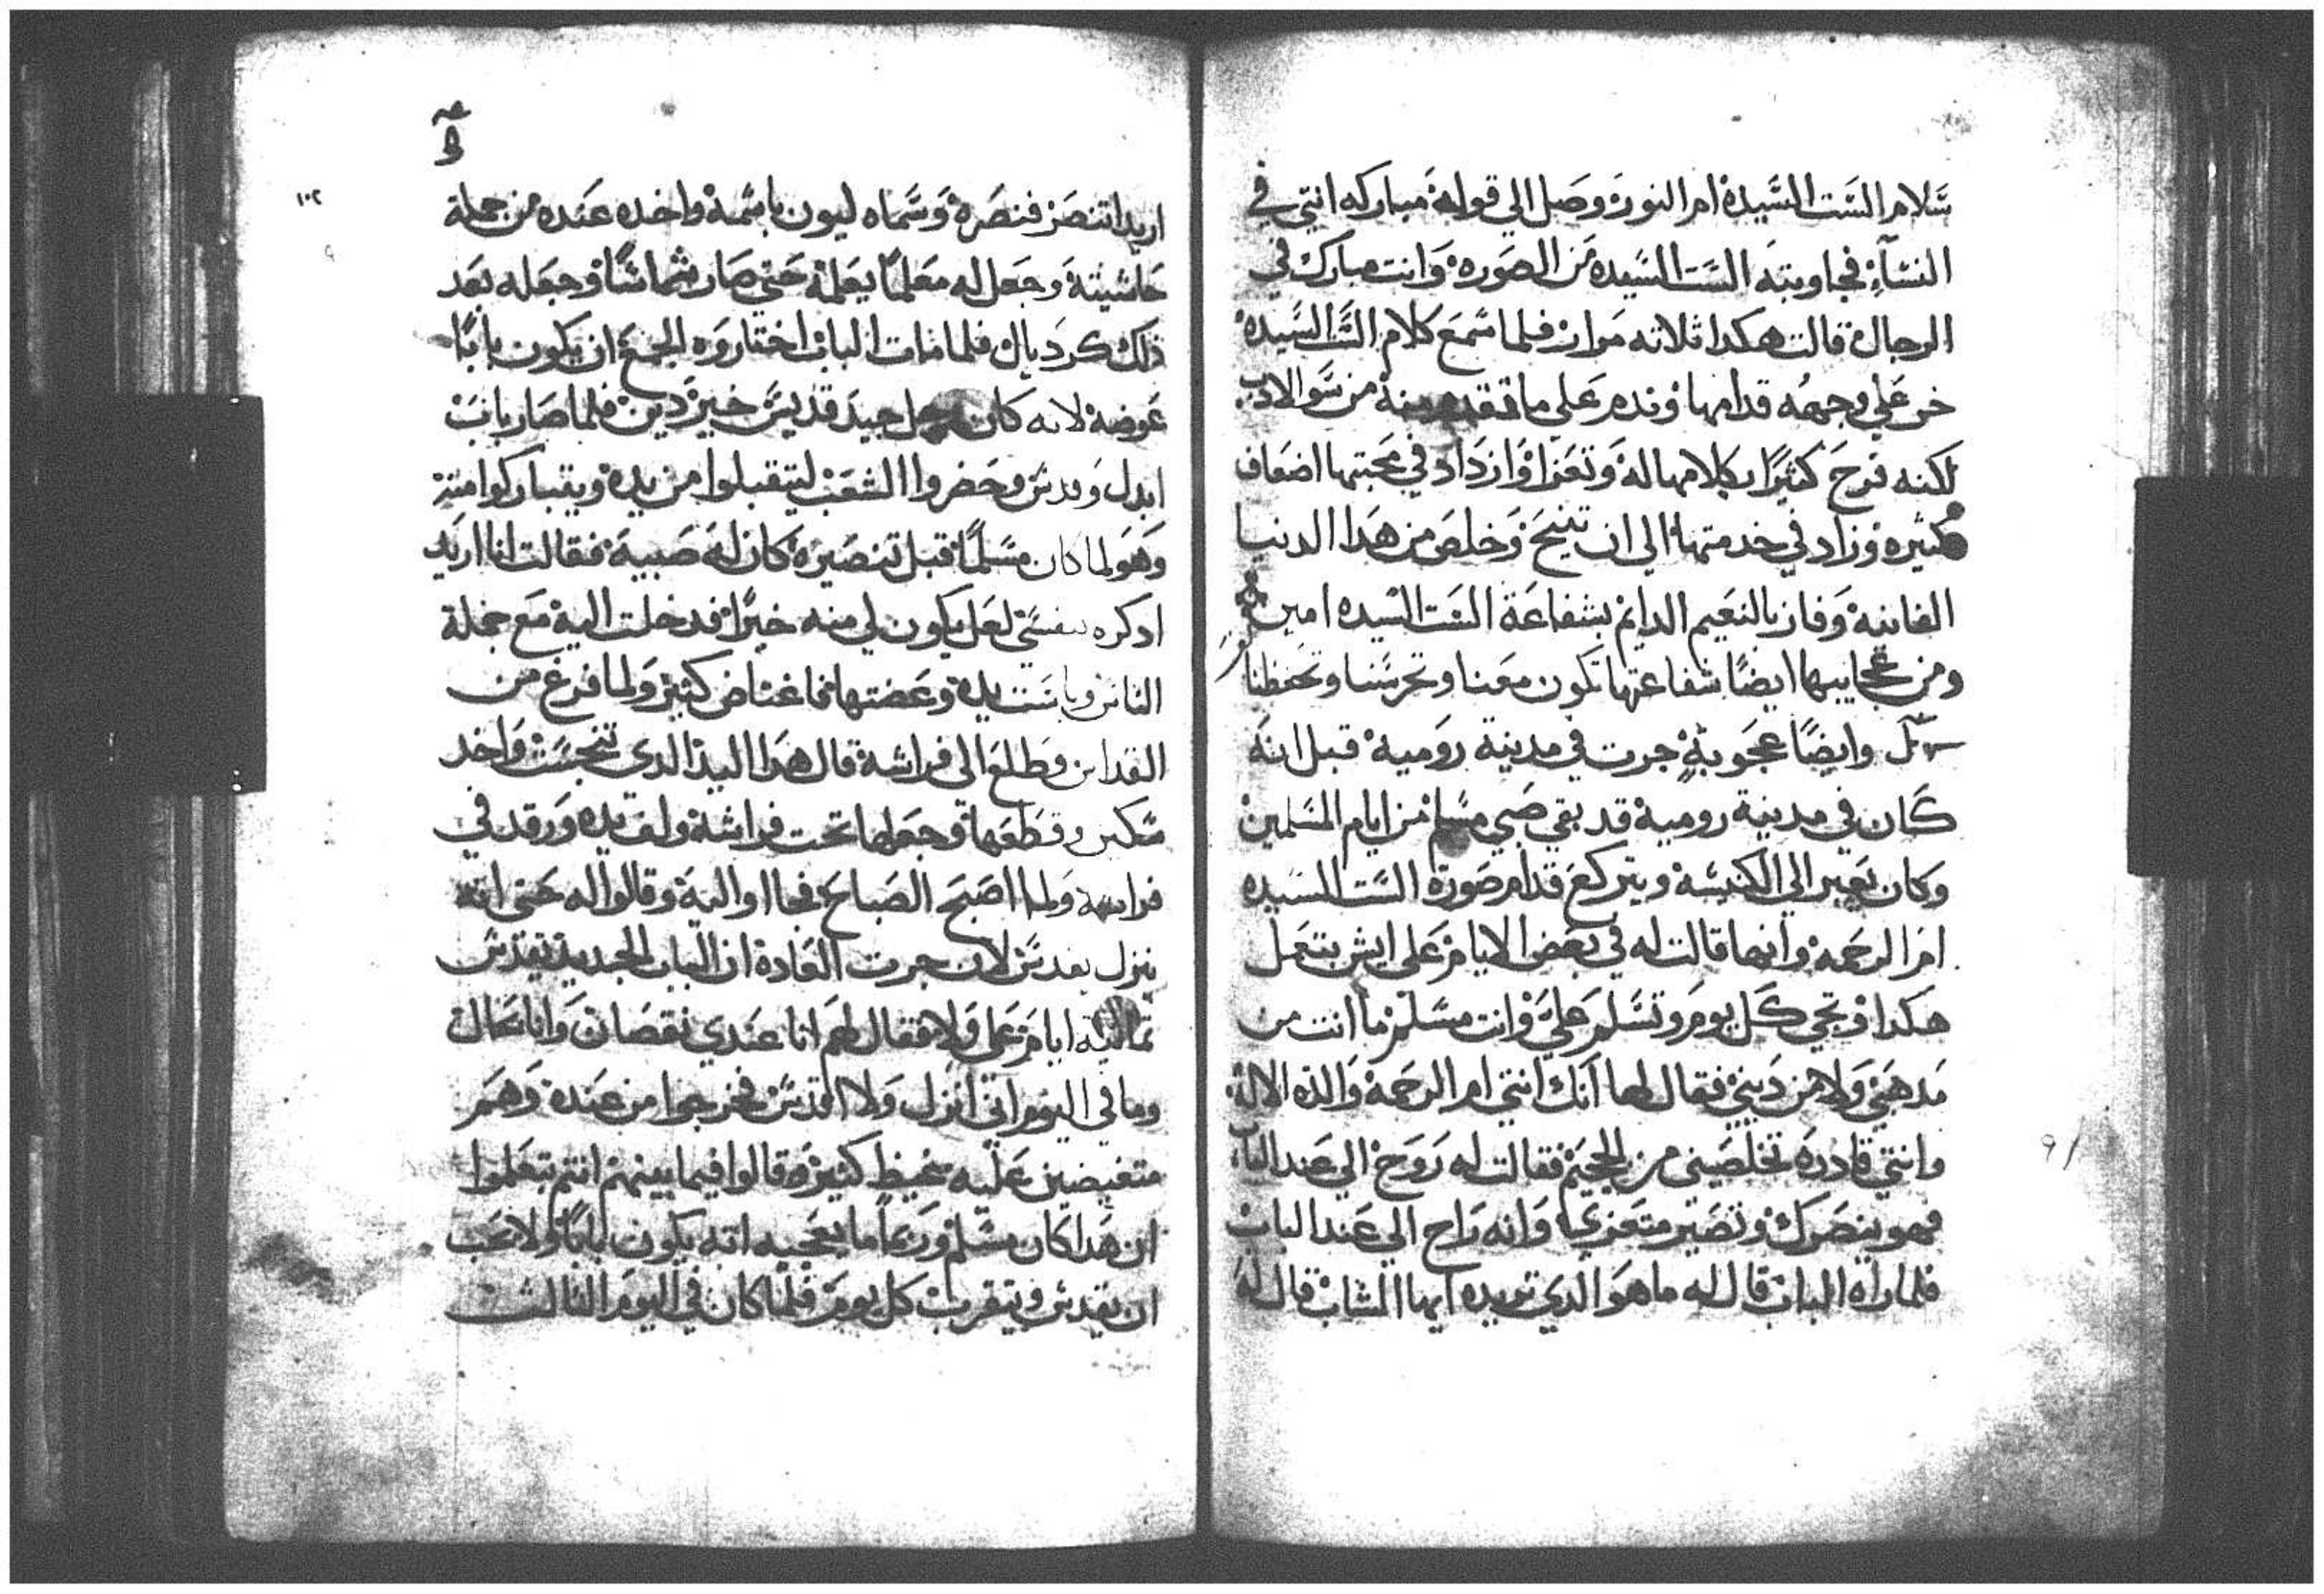 سلام الست السيدة ام النور وصل الي قوله مباركه انتي في
النسآء فجاوبته الست السيده من الصوره وانت مبارك في
الرجال قالت هكدا ثلاثه مرات فلما سمع كلام الست السيده
خر علي وجهه قدامها وندم علي ما تقدم منه من سو الادب
لكنه فرح كثيرًا بكلامها له وتعزا وازداد في محبتها اضعاف
كثيره وزاد في خدمتها الي ان تنيح وخلص من هدا الدنيا
الفانيه وفاز بالنعيم الدايم بشفاعة الست السيده امين
ومن عجايبها ايضًا شفاعتها تكون معنا وتحرسنا وتحفظنا
وايضًا عجوبة جرت في مدينة رومية قبل انه
كان في مدينة رومية قد بقي صبي مسلم من ايام المسلمين
وكان يعبر الي الكنيسة ويتركع قدام صورة الست السيده
ام الرحمه وانها قالت له في بعض الايام علي ايش بتعمل
هكدا وتجي كل يوم وتسلم علي وانت مسلم ما انت من
مدهبي ولا من ديني فقال لها انك انتي ام الرحمة والدة الاله
وانتي قادره تخلصيني من الجحيم فقالت له روح الي عند الباب
فهو ينصرك وتصير متعزي وانه راح الي عند الباب
فلما راه الباب قال له ما هو الدي تريده ايها الشاب قال له
١٠٢
اريد اتنصر فنصره وسماه ليون باسمه واخده عنده من جملة
حاشيته وجعل له معلمًا يعلمه حتي صار شماسًا وجعله بعد
دلك كرديال فلما مات الباب اختاروه الجمع ان يكون بابًا
عوضه لانه كان رجل جيد قديس خير دين فلما صار باب
ابدل وقدس وحضروا الشعب ليتقبلوا من يده ويتباركوا منه
وهو لما كان مسلمًا قبل تنصيره كان له صبية فقالت انا اريد
ادكره بنفسي لعل يكون لي منه خيرًا فدخلت اليه مع جملة
الناس وباست يده وعضتها فاغتاض كثير ولما فرغ من
القداس وطلع الى فراشه قال هدا اليد الدي تنجست واخد
سكين وقطعها وجعلها تحت فراشه ولف يده ورقد في
فراشه ولما اصبح الصباح فجاوا اليه وقالوا له حتى انه
ينزل يقدس لان جرت العادة ان الباب الجديد يقدس
ثمانيه ايام عمل ولا فقال لهم انا عندي نقصان وانا بحال
وما في اليوم اني انزل ولا اقدس فخرجوا من عنده وهم
متغيضين عليه غيظ كثير وقالوا فيما بينهم انتم بتعلموا
ان هدا كان مسلم وربما ما يعجبه انه يكون بابًا ولا يحب
ان يقدس ويتقرب كل يوم فلما كان في اليوم الثالث